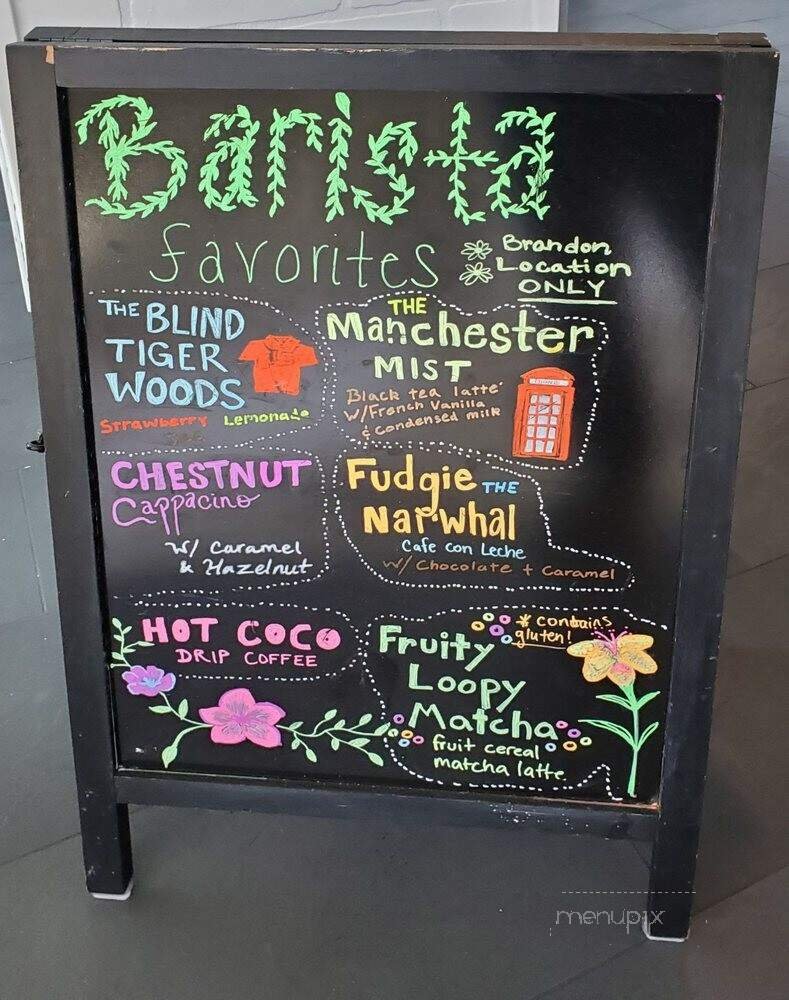 Barista
favorites
Brandon
Location
ONLY
THE BLIND
TIGER
WOODS
Strawberry Lemonade
THE
Manchester
MIST
Black tea latte
W/French Vanilla
& Condensed milk
CHESTNUT
Cappacino
W/ Caramel
& Hazelnut
Fudgie THE
Narwhal
Cafe con Leche
W/ Chocolate + Caramel
HOT COCO
DRIP COFFEE
* contains
gluten!
Fruity
Loopy
Matcha
fruit cereal
matcha latte
menupix